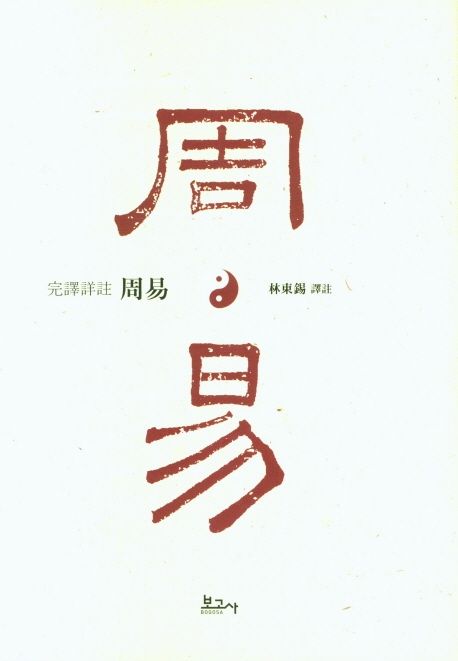 周
完譯詳註 周易
林東錫 譯註
易
보고사
BOGOSA